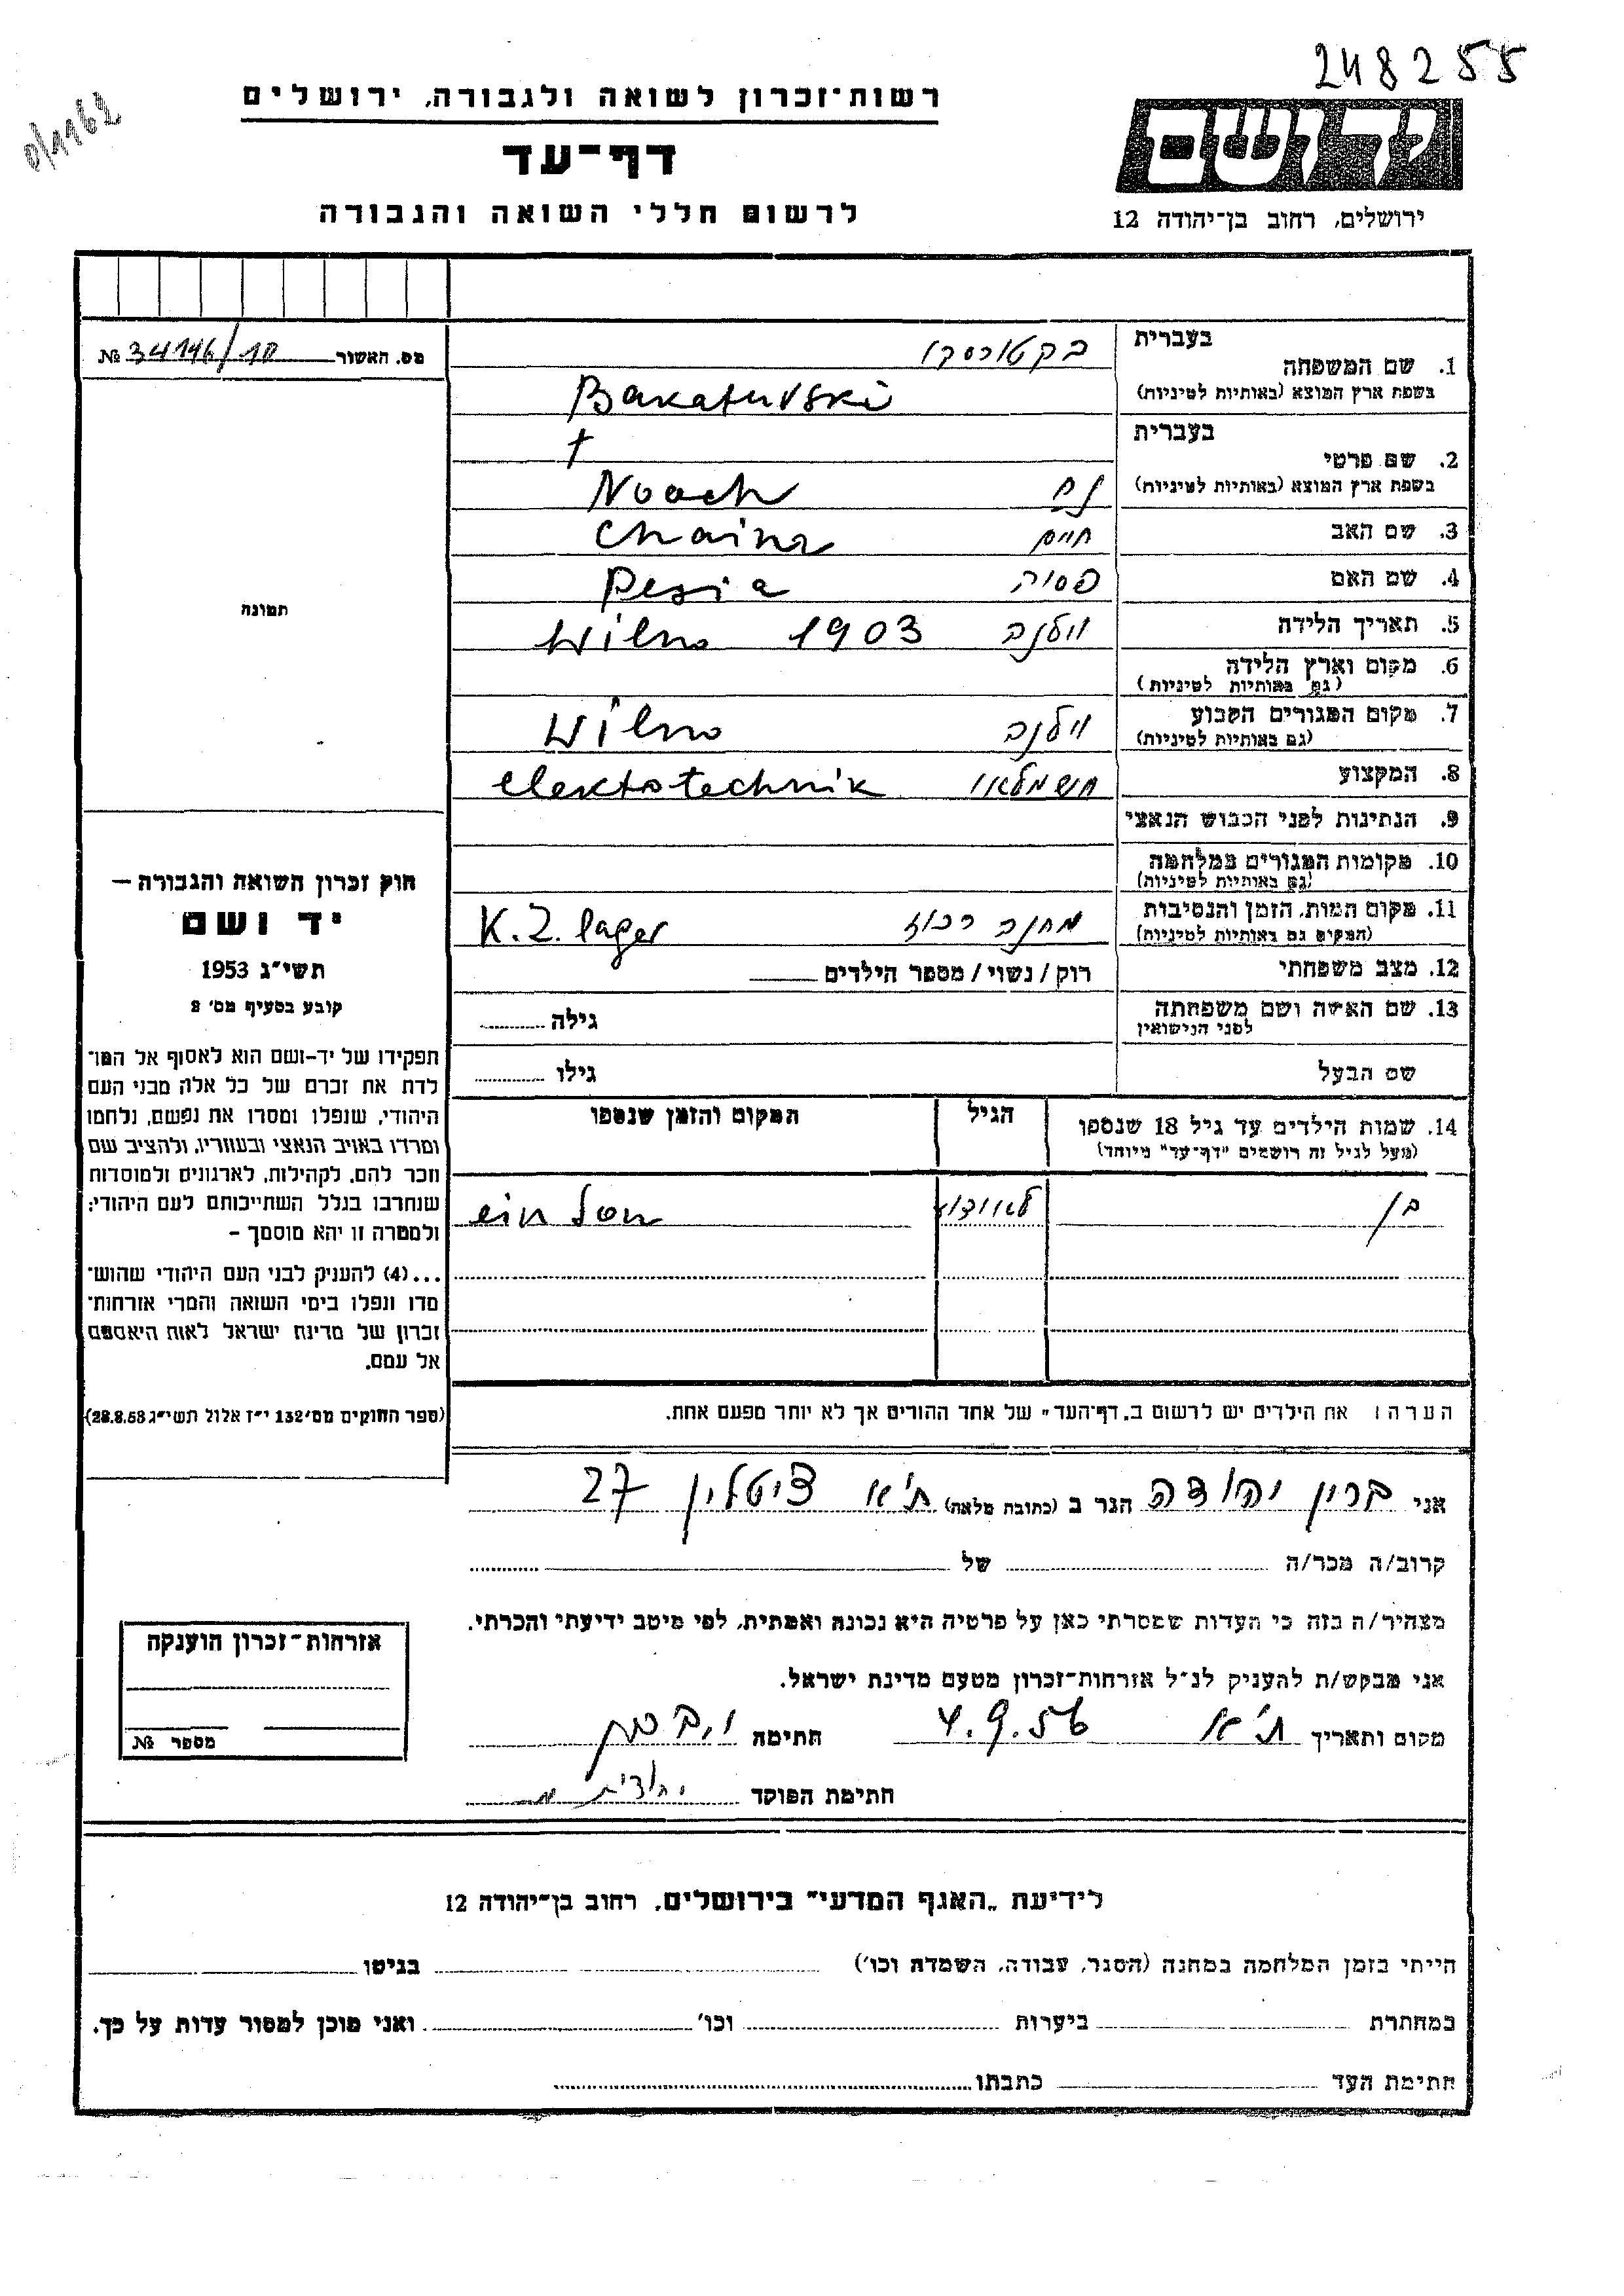 248255
0/1162
רשות־זכרון לשואה ולגבורה, ירושלים
דף־עד
לרשום חללי השואה והגבורה
יד ושם
ירושלים, רחוב בן־יהודה 12
מס. האשור 34146/10 №
תמונה
חוק זכרון השואה והגבורה —
יד ושם
תשי״ג 1953
קובע בסעיף מס׳ 2
תפקידו של יד-ושם הוא לאסוף אל המו־
לדת את זכרם של כל אלה מבני העם
היהודי, שנפלו ומסרו את נפשם, נלחמו
ומרדו באויב הנאצי ובעוזריו, ולהציב שם
וזכר להם, לקהילות, לארגונים ולמוסדות
שנחרבו בגלל השתייכותם לעם היהודי;
ולמטרה זו יהא מוסמך –
...(4) להעניק לבני העם היהודי שהוש־
מדו ונפלו בימי השואה והמרי אזרחות־
זכרון של מדינת ישראל לאות היאספם
אל עמם.
(ספר החוקים מס׳ 132 י״ז אלול תשי״ג 28.8.53)
1. שם המשפחה בעברית בקטורסקי
בשפת ארץ המוצא (באותיות לטיניות) Bakaturski
2. שם פרטי בעברית
בשפת ארץ המוצא (באותיות לטיניות) נח Noach
3. שם האב חיים Chaim
4. שם האם פסיה Pesia
5. תאריך הלידה וילנה 1903 Wilno
6. מקום וארץ הלידה
(גם באותיות לטיניות)
7. מקום המגורים הקבוע וילנה Wilno
(גם באותיות לטיניות)
8. המקצוע חשמלאי elektotechnik
9. הנתינות לפני הכבוש הנאצי
10. מקומות המגורים במלחמה
(גם באותיות לטיניות)
11. מקום המות, הזמן והנסיבות מחנה רכוז K.Z. lager
(המקום גם באותיות לטיניות)
12. מצב משפחתי רוק / נשוי / מספר הילדים
13. שם האשה ושם משפחתה גילה
לפני הנישואין
שם הבעל גילו
14. שמות הילדים עד גיל 18 שנספו הגיל המקום והזמן שנספו
(מעל לגיל זה רושמים ״דף־עד״ מיוחד)
בן לא ידוע ein son
הערה: את הילדים יש לרשום ב„דף־העד״ של אחד ההורים אך לא יותר מפעם אחת.
אני ברון יהודה הגר ב (כתובת מלאה) ת״א צייטלין 27
קרוב/ה מכר/ה של
מצהיר/ה בזה כי העדות שמסרתי כאן על פרטיה היא נכונה ואמתית, לפי מיטב ידיעתי והכרתי.
אני מבקש/ת להעניק לנ״ל אזרחות־זכרון מטעם מדינת ישראל.
מקום ותאריך ת״א 4.9.56 חתימה
חתימת הפוקד יהודית
אזרחות־זכרון הוענקה
מספר №
לידיעת „האגף המדעי״ בירושלים, רחוב בן־יהודה 12
הייתי בזמן המלחמה במחנה (הסגר, עבודה, השמדה וכו׳) בגיטו
במחתרת ביערות וכו׳ ואני מוכן למסור עדות על כך.
חתימת העד כתבתו